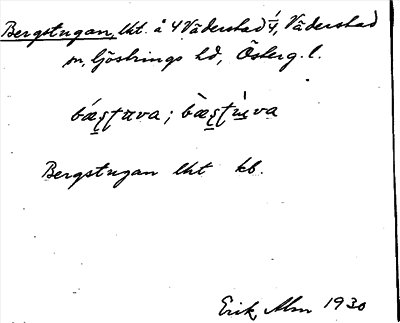 Bergstugan, lht. å 4 Väderstad 1/4, Väderstad
sn, Göstrings hd, Österg. l.
Bergstugan lht kb.
Erik Alm 1930